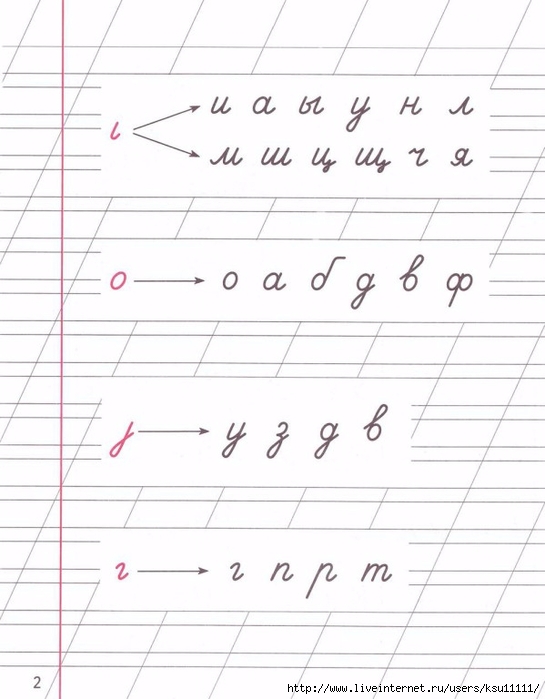 и а ы у н л
м ш ц щ ч я
о о а б д в ф
у з д в
г г п р т
2
http://www.liveinternet.ru/users/ksu11111/